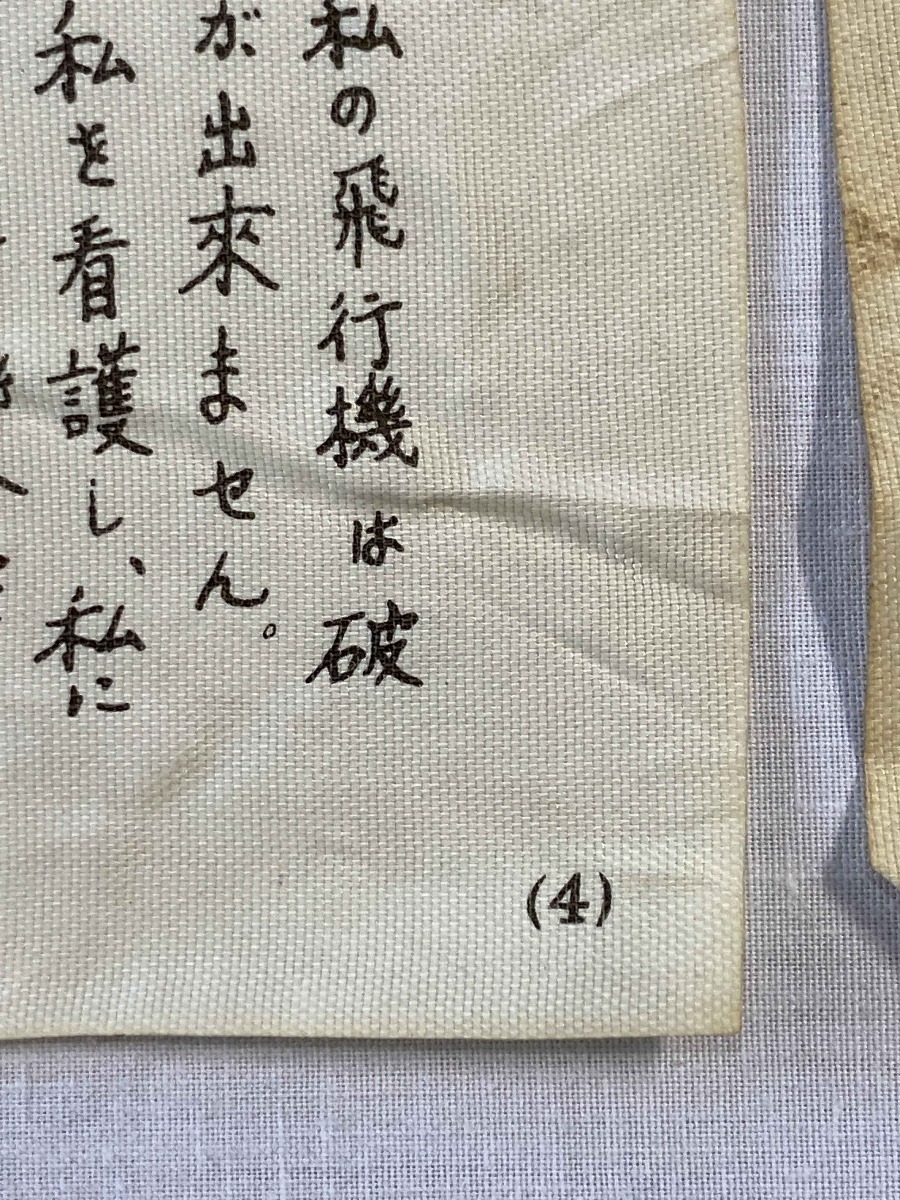 私の飛行機は破
が出來ません。
私を看護し、私に
(4)